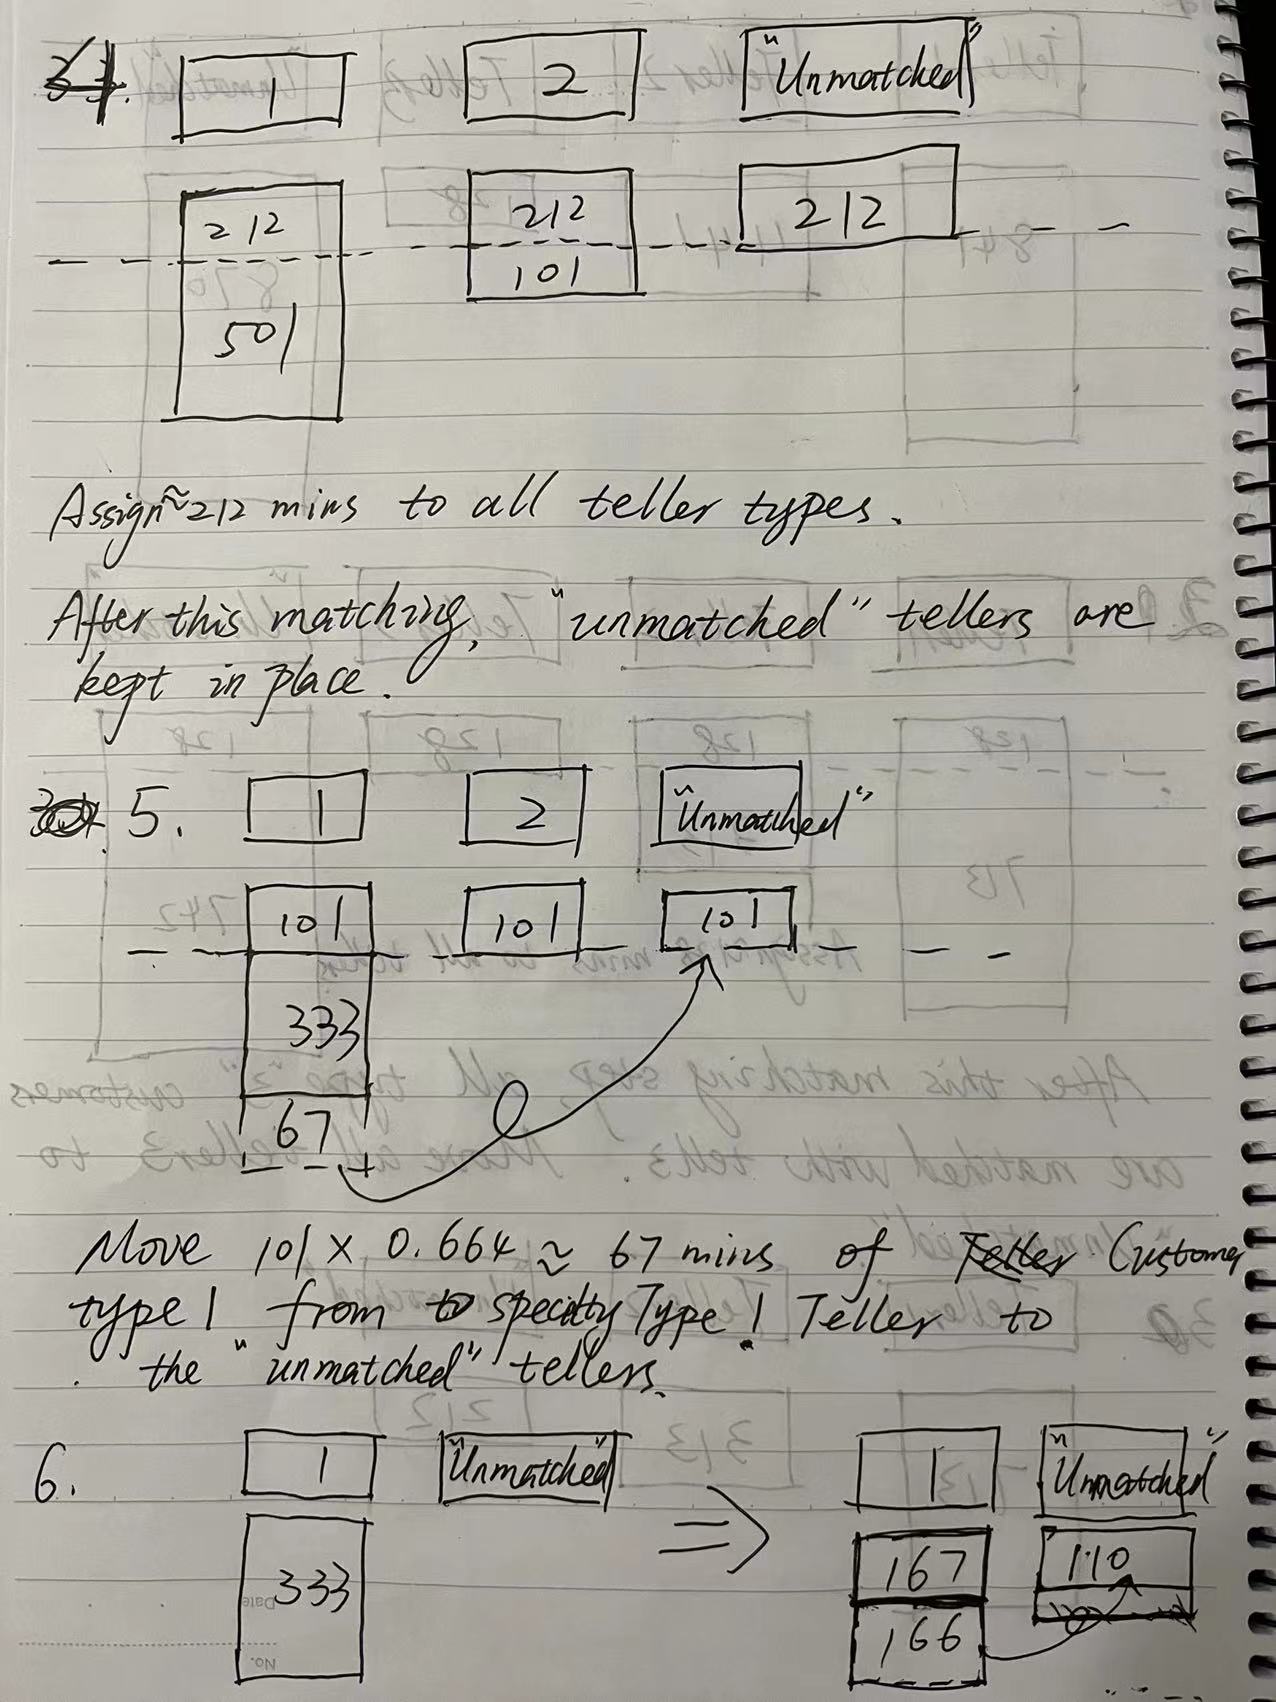 4.
1 2 "Unmatched"
212 212 212
501 101
Assign ≈ 212 mins to all teller types.
After this matching, "unmatched" tellers are
kept in place.
5. 1 2 "Unmatched"
101 101 101
333
67
Move 101 × 0.664 ≈ 67 mins of Customer
type 1 from specilty Type 1 Teller to
the "unmatched" tellers.
6. 1 "Unmatched" ⇒ 1 "Unmatched"
333 167 110
166
Date
No.